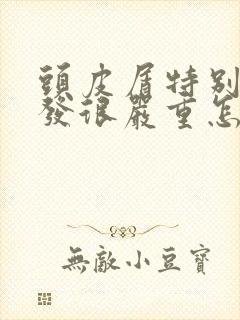 頭皮屑特別
發很嚴重怎
無敵小豆寶